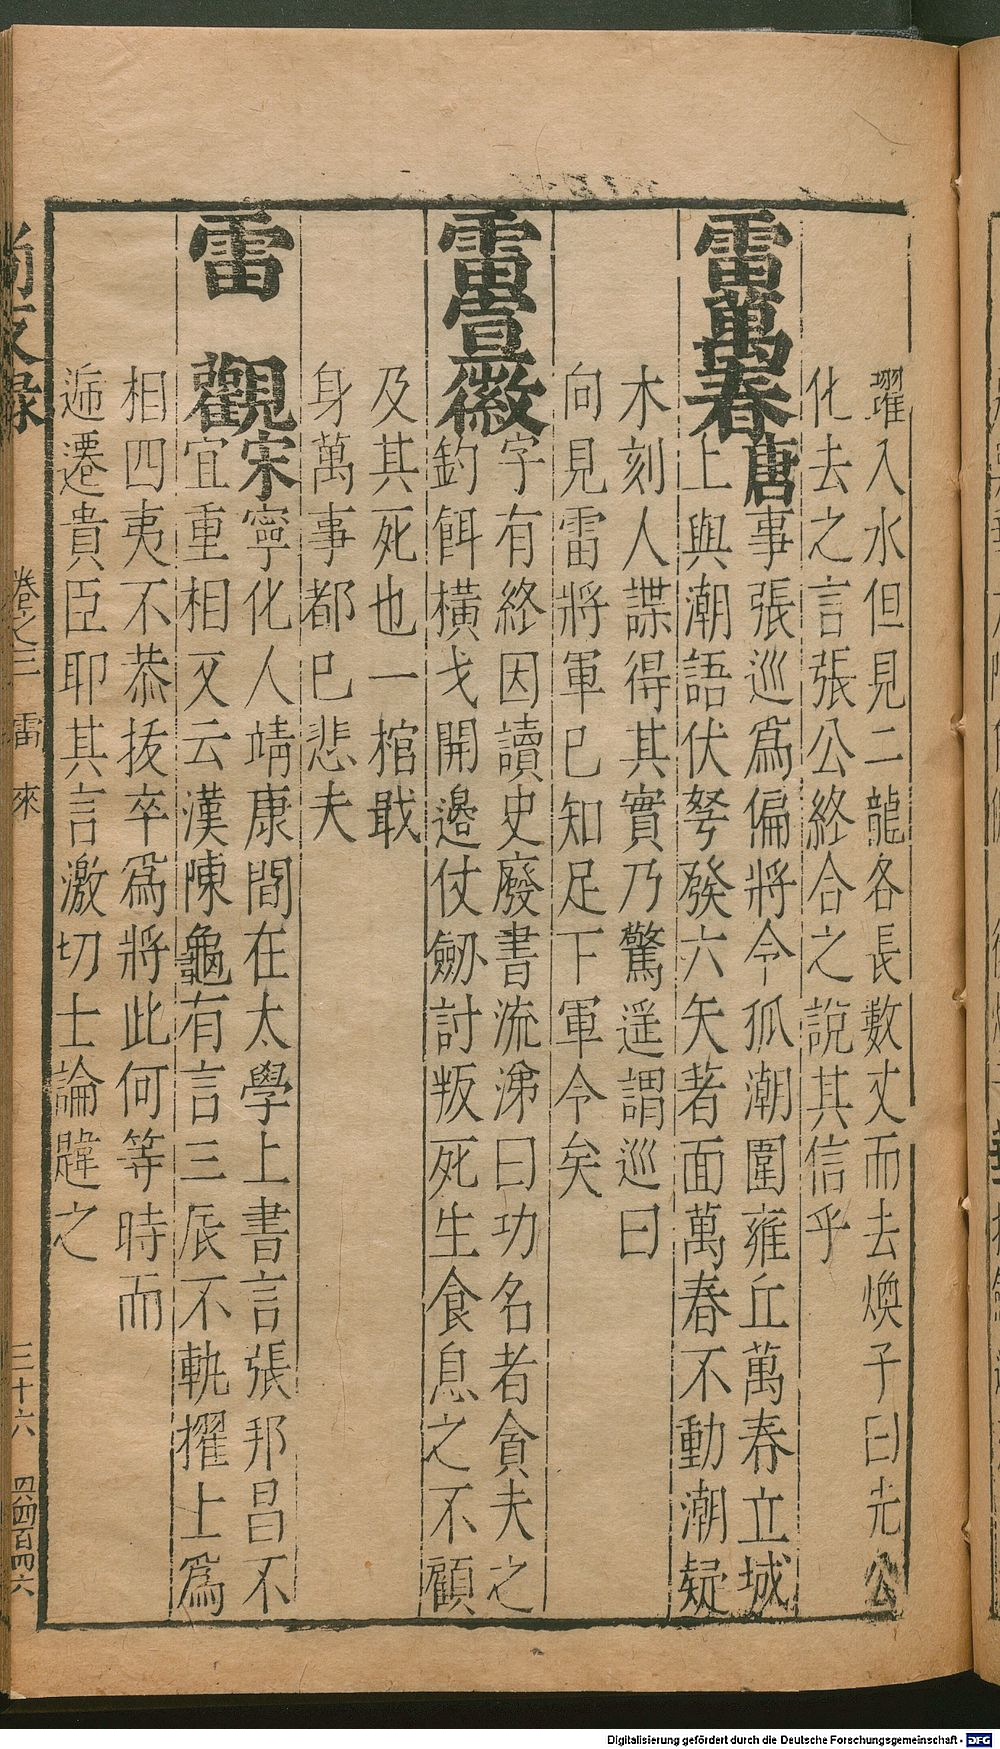 躍入水但見二龍各長數丈而去煥子曰先公
化去之言張公終合之說其信乎
雷萬春唐事張巡爲偏將令狐潮圍雍丘萬春立城
上與潮語伏弩發六矢著面萬春不動潮疑
木刻人諜得其實乃驚遥謂巡曰
向見雷將軍已知足下軍令矣
雷亘徽字有終因讀史廢書流涕曰功名者貪夫之
釣餌橫戈開邊仗劒討叛死生食息之不顧
及其死也一棺戢
身萬事都已悲夫
雷觀宋寧化人靖康間在太學上書言張邦昌不
宜重相又云漢陳龜有言三辰不軌擢士爲
相四夷不恭拔卒爲將此何等時而
遞遷貴臣耶其言激切士論韙之
尚友錄 卷之三 雷 來 三十六
四百四六
Digitalisierung gefördert durch die Deutsche Forschungsgemeinschaft - DFG